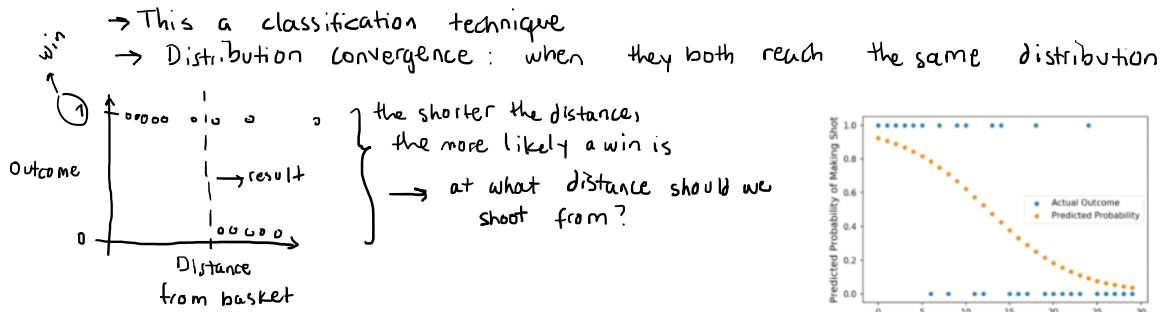 → This a classification technique
→ Distribution convergence : when they both reach the same distribution
win
1
Outcome
0
→ result
Distance
from basket
the shorter the distance,
the more likely a win is
→ at what distance should we
shoot from?
Predicted Probability of Making Shot
1.0
0.8
0.6
0.4
0.2
0.0
Actual Outcome
Predicted Probability
0 5 10 15 20 25 30